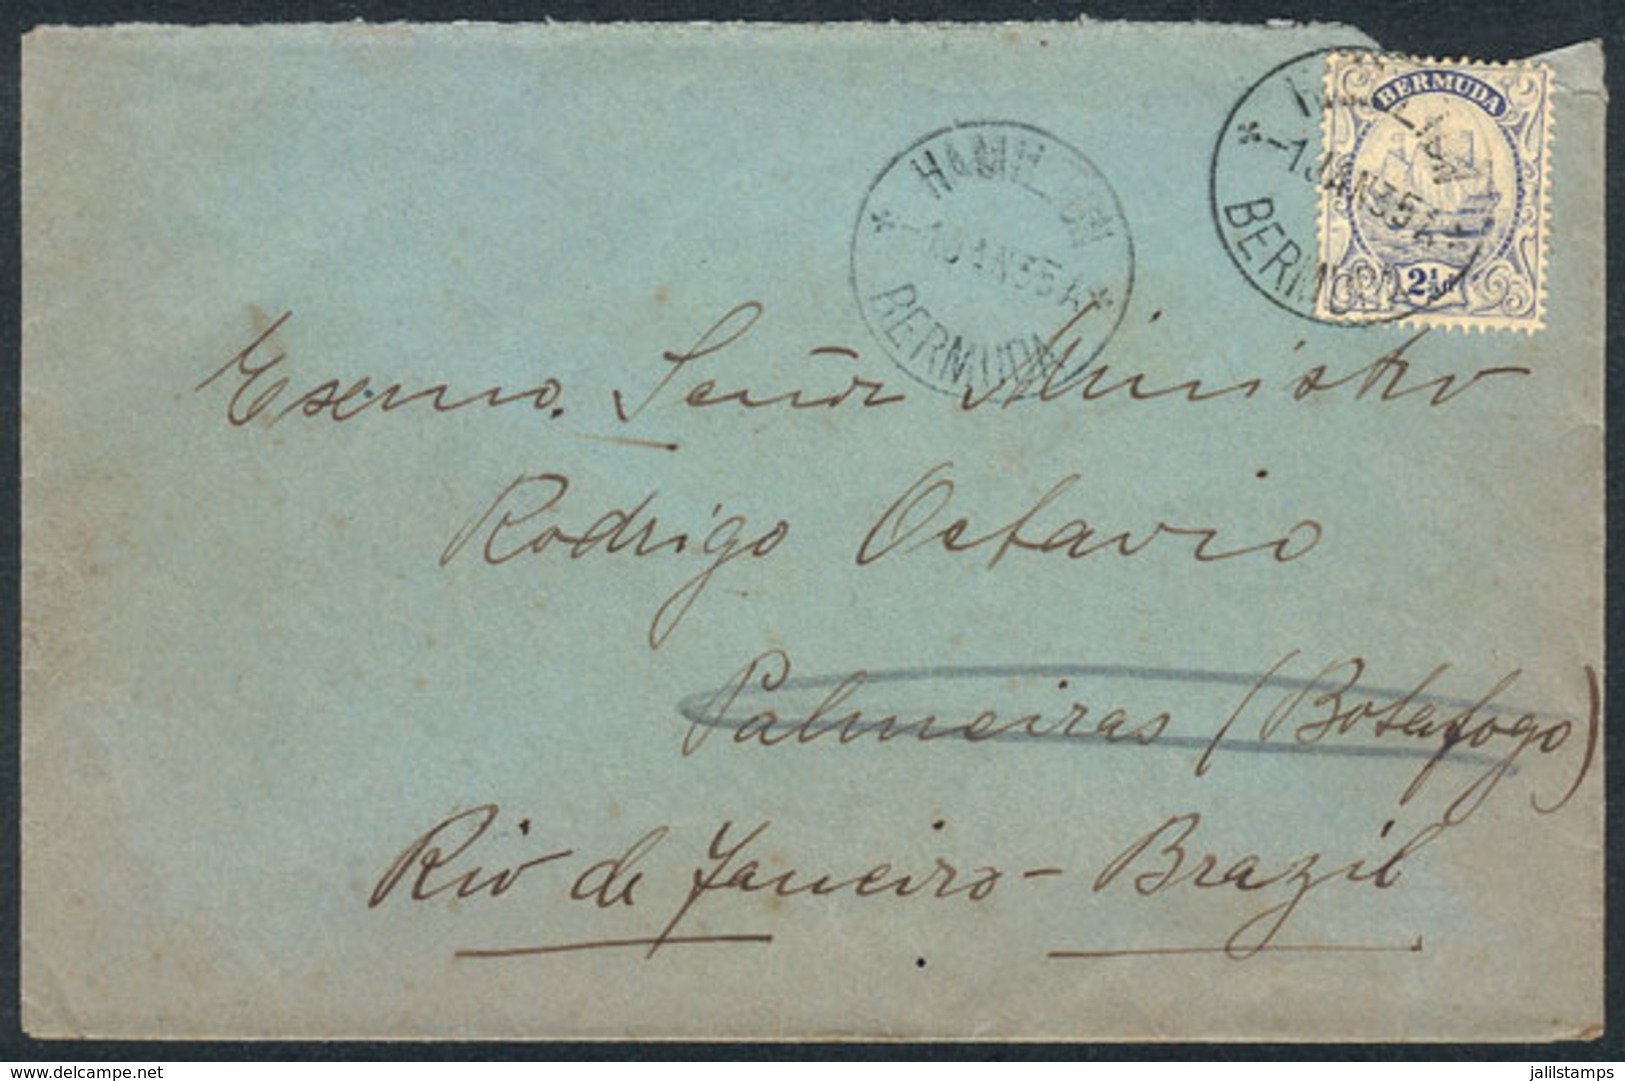 BERMUDA
2½d
HAMILTON
1 JAN 35 A
BERMUDA
HAMILTON
1 JAN 35 A
BERMUDA
Exmo. Señor Ministro
Rodrigo Octavio
Palmeiras (Botafogo)
Rio de Janeiro - Brazil
delcampe.net
jalilstamps